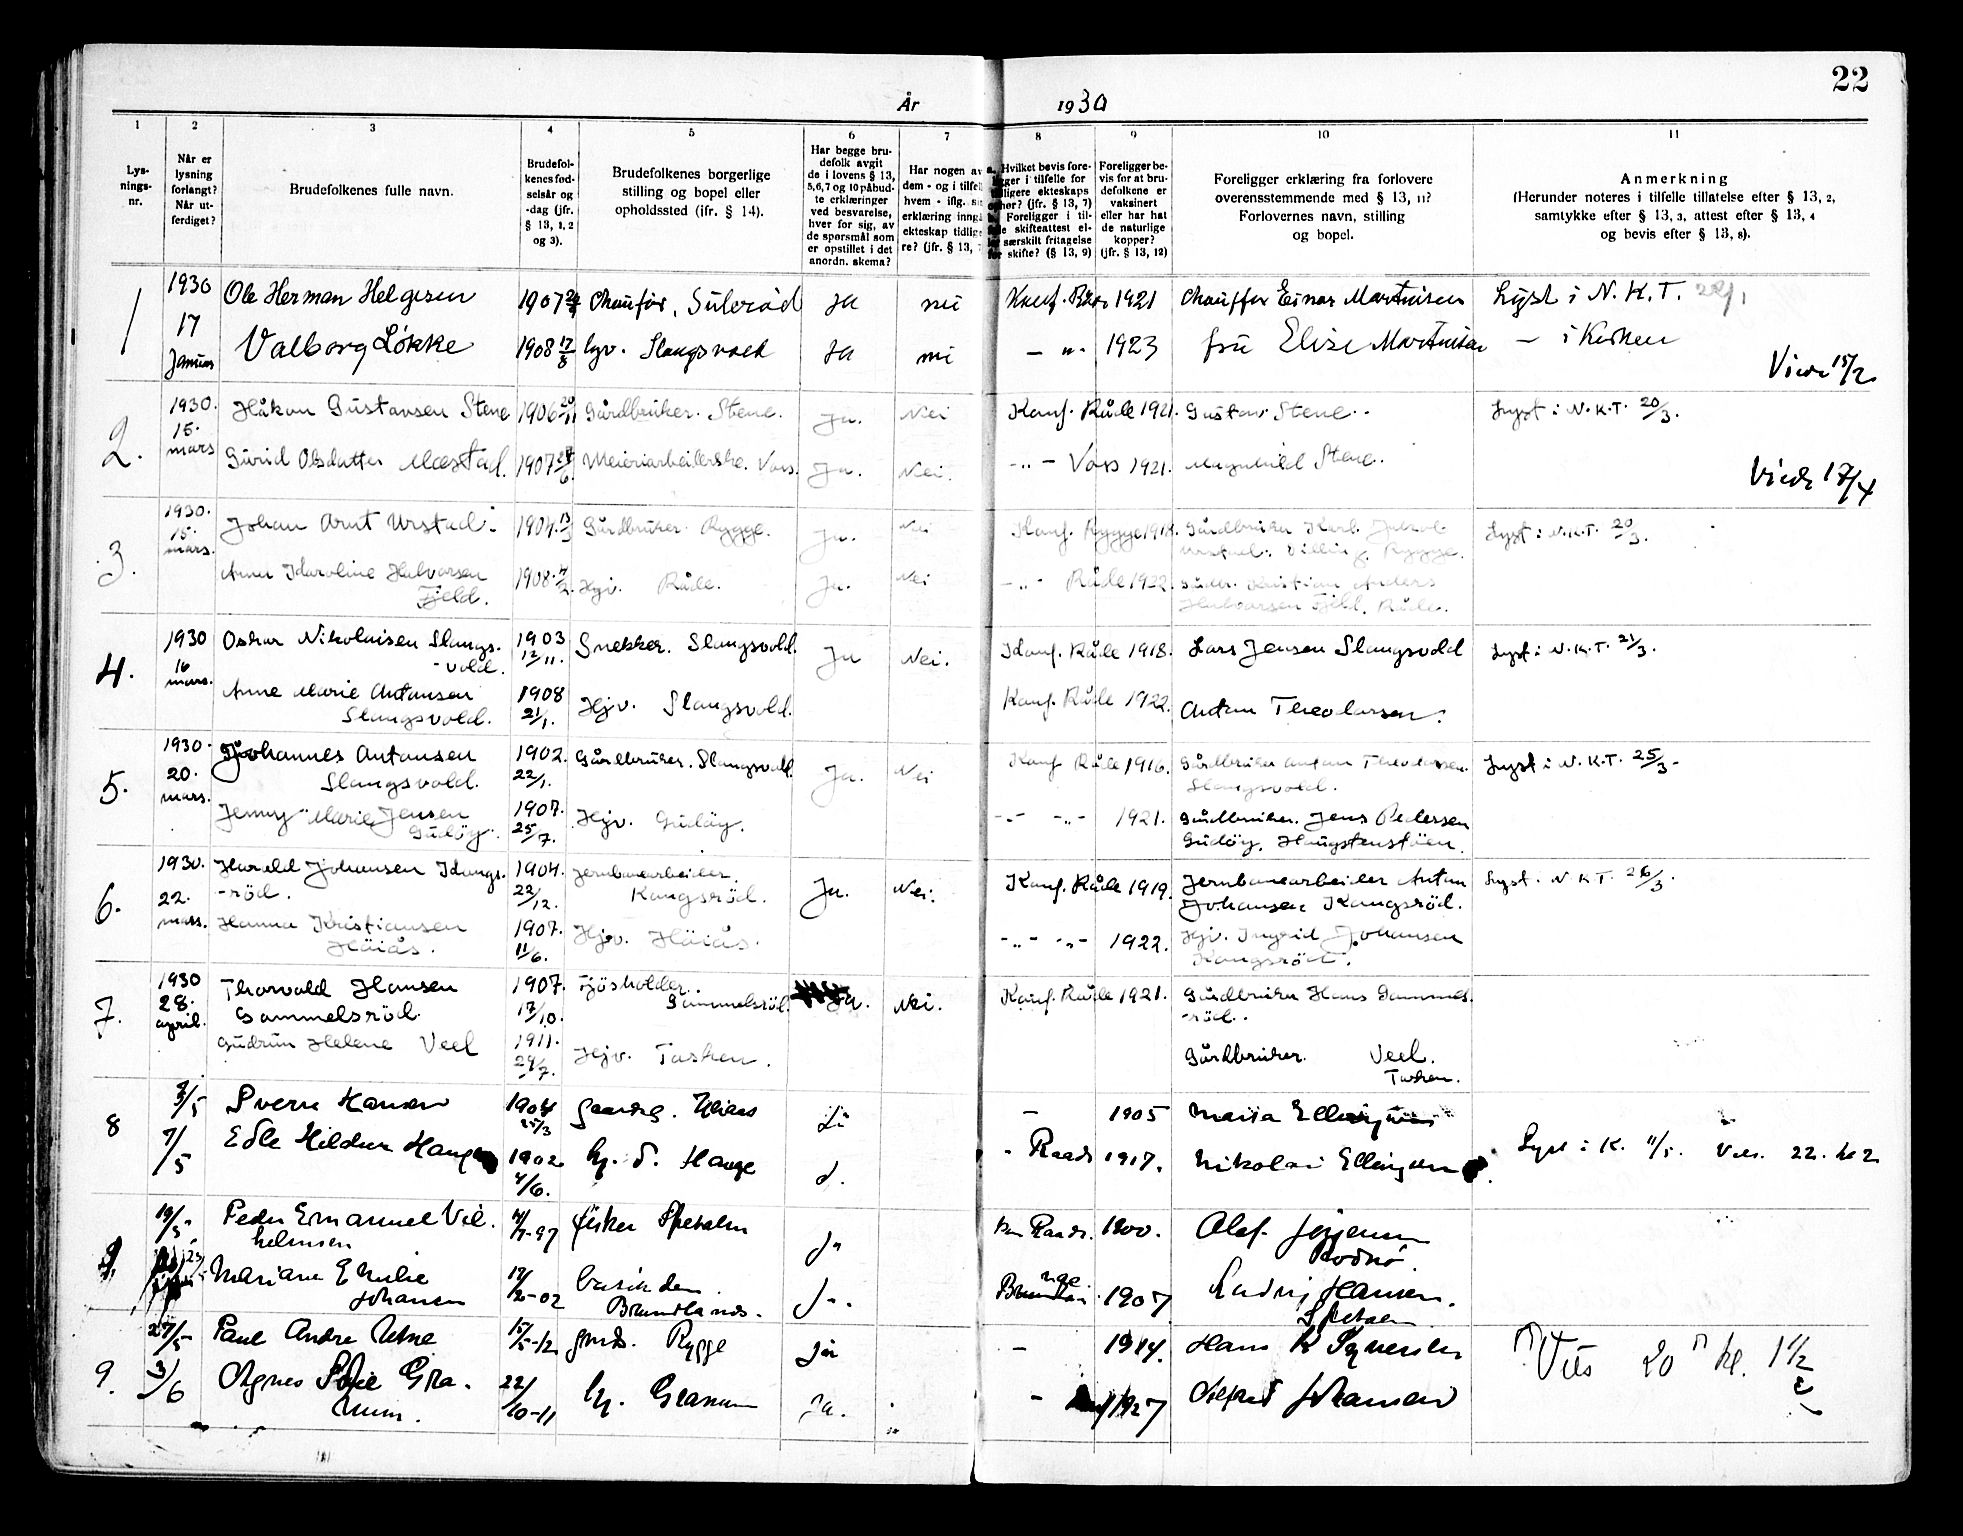 22
År 1930
1 2 3 4 5 6 7 8 9 10 11
Lys-
nings-
nr.
Når er
lysning
forlangt?
Når ut-
ferdiget?
Brudefolkenes fulle navn.
Brudefol-
kenes fød-
selsår og
-dag (jfr.
§ 13, 1, 2
og 3).
Brudefolkenes borgerlige
stilling og bopel eller
opholdssted (ifr. § 14).
Har begge bru-
defolk avgit
de i lovens § 13,
5,6,7 og 10 påbud-
te erklæringer
ved besvarelse,
hver for sig, av
de spørsmål som
er opstillet i det
anordn. skema?
Har nogen av
dem - og i tilfel
hvem - iflg. si
erklæring inng
ekteskap tidlig
re? (jfr. § 13,
Hvilket bevis fore-
gger i tilfelle for
dligere ekteskaps
opher? (jfr. § 13, 7)
Foreligger i til-
le skifteattest el-
særskilt fritagelse
for skifte? (§ 13, 9)
Foreligger be-
vis for at bru-
defolkene er
vaksinert
eller har hat
de naturlige
kopper?
(jfr. § 13, 12)
Foreligger erklæring fra forlovere
overensstemmende med § 13, 11?
Forlovernes navn, stilling
og bopel.
Anmerkning
(Herunder noteres i tilfelle tillatelse efter § 13, 2,
samtykke efter § 13, 3, attest efter § 13, 4
og bevis efter § 13, 8).
1
1930
17
Januar
Ole Herman Helgesen
1907
Chaufför, Sulerød
Ja
nei
Konf. 1921
Chauffør Einar Martinsen
Lyst i N.K.T.
Valborg Løkke
1908 17/8
hjv. Slangsvold
Ja
nei
— " - 1923
fru Elise Martinsen
— i Kirken
Viede 15/2
2.
1930.
15.
mars
Håkon Gustavsen Stene
1906 20/11
Gårdbruker. Stene.
Ja.
Nei
Konf. Råde 1921.
Gustav Stene.
Lyst i N.K.T. 20/3.
Gurid Olsdatter Mæstad.
1907
Meieriarbeiderske. Vårs.
Ja.
Nei.
-"- Vårs 1921.
Magnhild Stene.
Viede 17/4
3.
1930.
15.
mars.
Johan Arnt Urstad.
1904. 13/3
Gårdbruker. Rygge.
Ja.
Nei
Konf. Rygge 1918.
Gårdbruker Karl Jakob
Urstad. Rygge.
Lyst i N.K.T. 20/3.
Anna Karoline Halvorsen
Fjeld.
1908.
Hjv. Råde.
Ja.
Nei
-"- Råde 1922.
Gårdbr. Kristian Anders
Halvorsen Fjeld, Råde.
4.
1930
16
mars.
Oskar Nikolaisen Slangs-
vold.
1903
12/11.
Snekker. Slangsvold.
Ja
Nei.
Konf. Råde 1918.
Lars Jensen Slangsvold
Lyst i N.K.T. 21/3.
Anne Marie Antonsen
Slangsvold.
1908
21/1.
Hjv. Slangsvold.
Konf. Råde 1922.
Anton Theodorsen.
5.
1930.
20.
mars.
Johannes Antonsen
Slangsvold.
1902.
22/1.
Gårdbruker. Slangsvold.
Ja.
Nei
Konf Råde 1916.
Gårdbruker Anton Theodorsen.
Slangsvold.
Lyst i N.K.T. 25/3-
Jenny Marie Jensen
Gudöy.
1907.
25/7.
Hjv. Gudöy.
-"- -"- 1921.
Gårdbruker. Jens Pedersen
Gudöy. Haugstenstöen.
6.
1930.
22.
mars.
Harald Johansen Kongs-
-röd.
1904.
22/12.
Jernbanearbeider.
Kongsröd.
Ja.
Nei.
Konf. Råde 1919.
Jernbanearbeider Anton
Johansen Kongsröd.
Lyst. i N K T. 26/3.
Hanna Kristiansen
Höiås.
1907.
11/6.
Hjv. Höiås.
-"- -"- 1922.
Hjv. Ingrid Johansen
Kongsröd.
7.
1930
28.
april.
Thorvald Hansen
Gammelsröd.
1907.
17/10.
Fjösholder.
Gammelsröd.
Ja.
Nei.
Konf. Råde 1921.
Gårdbruker Hans Gammels-
röd.
Gudrun Helene Veel
1911.
29/7.
Hjv. Tasken.
Gårdbruker. Veel.
Tasken.
8
3/5
7/5
Sverre Hansen
1904
25/3
gaardbr. Höiaas
—
1905
Maria Ellingsen
Edle Hildur Hauge
1902
4/6.
hj. d. Hauge
d.
- Raade 1917.
Nikolai Ellingsen
Lyst i K. 11/5. Vies. 22. kl 2
9.
19/5
Peder Emanuel Vil-
helmsen
4/7-97
fisker Spetalen
Ja
Raade. 1900.
Olaf Jörgensen
Rodnö.
Mariane Emilie
Johansen
02
Brandlands.
Ja.
1907
Ludvig Hansen.
Spetalen
9.
27/5
3/6
Paul Andre Utne
15/5-12
gmds. Rygge
ja
—
1914.
Hans R Syversen
Vies 20 kl. 1 1/2 e
Agnes Sofie Gra-
num.
22/10-11
hj. Granum
ja.
—
1927
Alfred Johansen